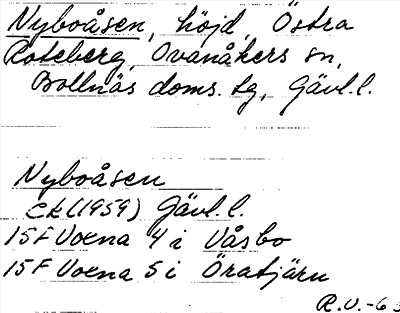 Nyboåsen, höjd, Östra
Roteberg, Ovanåkers sn,
Bollnäs doms. tg, Gävl.l.
Nyboåsen
ek(1959) Gävl.l.
15F Voxna 4 i Våsbo
15F Voxna 5 i Öratjärn
R.U.-63